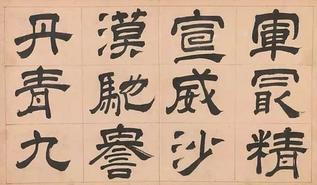 軍最精
宣威沙
漠馳譽
丹青九